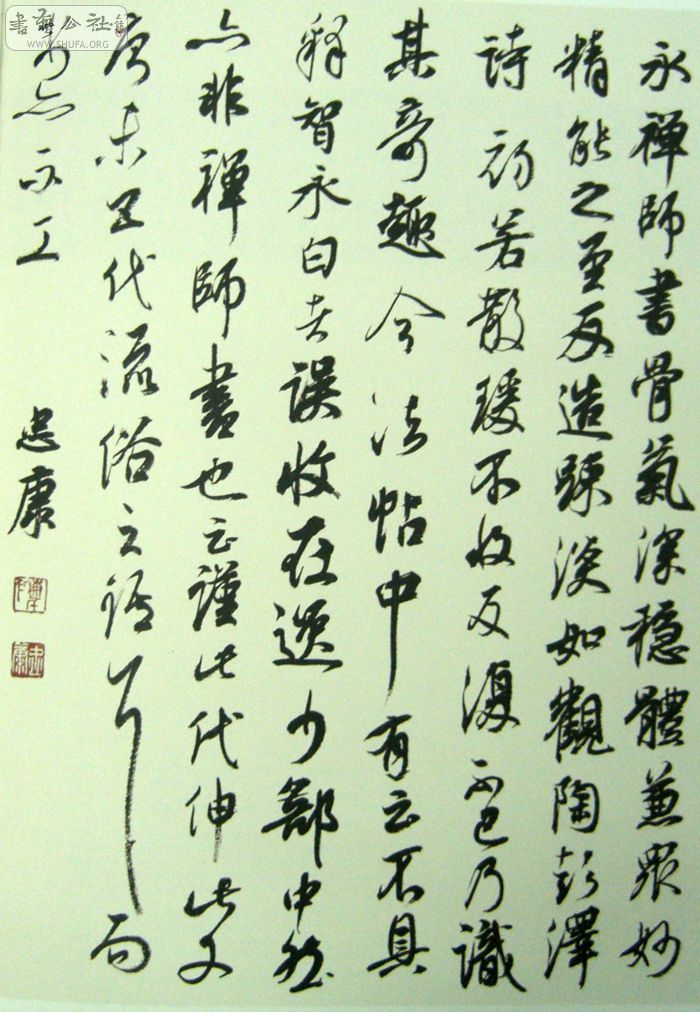 永禪師書骨氣深穩體兼眾妙
精能之至反造疎淡如觀陶彭澤
詩初若散緩不收反覆不已乃識
其奇趣今法帖中有云不具
釋智永白者誤收在逸少部中然
亦非禪師書也云謹此代伸此乃
唐末五代流俗之語耳而
書亦不工
忠康
WWW.SHUFA.ORG